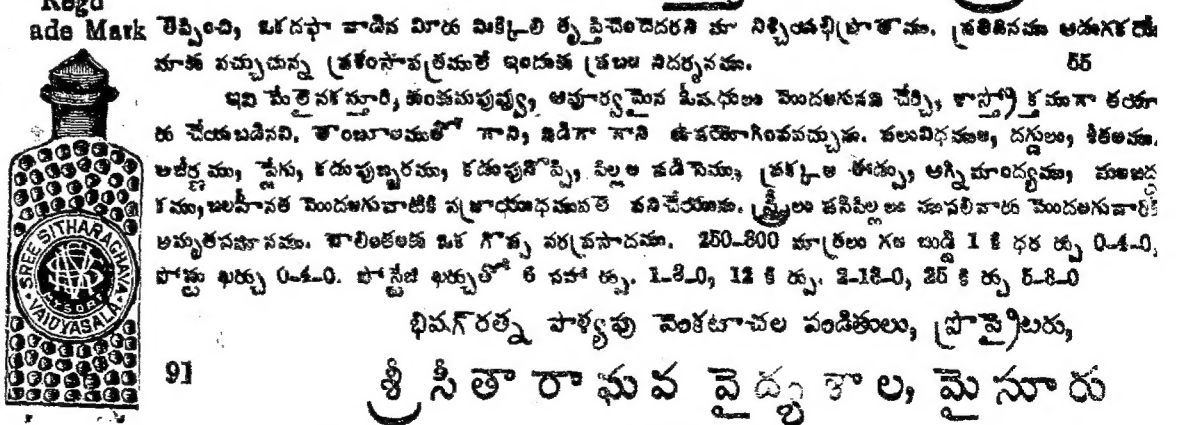 Regd
ade Mark
తెప్పించి, ఒకదఫా వాడిన మీరు మిక్కిలి తృప్తిచెందెదరని మా నిశ్చియాభిప్రాతాము. ప్రతిదినము ఆడుగకయే
మాకు వచ్చుచున్న ప్రశంసాపత్రములే ఇందుకు ప్రబల నిదర్శనము.
ఇవి మేలైనకస్తూరి, కుంకుమపువ్వు, అపూర్వమైన ఓషధులు మొదలగునవి చేర్చి, శాస్త్రోక్తముగా తయా
రు చేయబడినవి. తాంబూలముతో గాని, విడిగా గాని ఉపయోగించవచ్చును. పలువిధముల, దగ్గులు, శీతలము.
అజీర్ణము, ప్లేగు, కడుపుబ్బరము, కడుపునొప్పి, పిల్లల పడిసెము, ప్రక్కల ఈడ్పు, అగ్నిమాంద్యము, మలబద్ధ
కము, బలహీనత మొదలగువాటికి వజ్రాయుధమువలె పనిచేయును. స్త్రీలు పసిపిల్లలు ముసలివారు మొదలగువారికి
అమృతసమానము. బాలింతలకు ఒక గొప్ప వరప్రసాదము. 250-300 మాత్రలు గల బుడ్డి 1 కి ధర ర్పు 0-4-0,
పోష్టు ఖర్చు 0-4-0. పోస్టేజి ఖర్చుతో 6 సహా ర్పు. 1-8-0, 12 కి ర్పు. 2-18-0, 25 కి ర్పు 5-8-0
భిషగ్రత్న పాళ్యపు వెంకటాచల పండితులు, ప్రొప్రైటరు,
91
శ్రీ సీతా రాఘవ వైద్య శాల, మైసూరు
SREE SITHARAGHAVA
VAIDYASALA
MYSORE